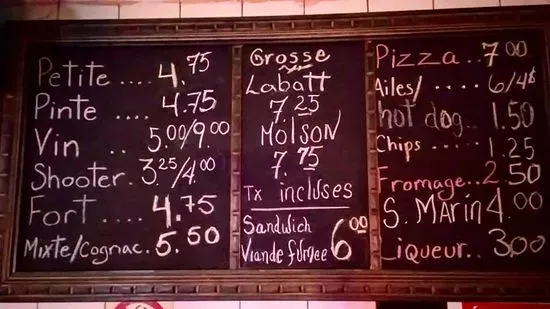 Petite .... 4.75
Pinte .... 4.75
Vin .. 5.00/9.00
Shooter. 3.25/4.00
Fort .... 4.75
Mixte/Cognac. 5.50
Grosse
Labatt
7.25
Molson
7.75
Tx incluses
Sandwich
Viande fumée 6.00
Pizza .. 7.00
Ailes/ .... 6/4$
hot dog.. 1.50
Chips .... 1.25
Fromage... 2.50
S. Marin 4.00
Liqueur.. 3.00